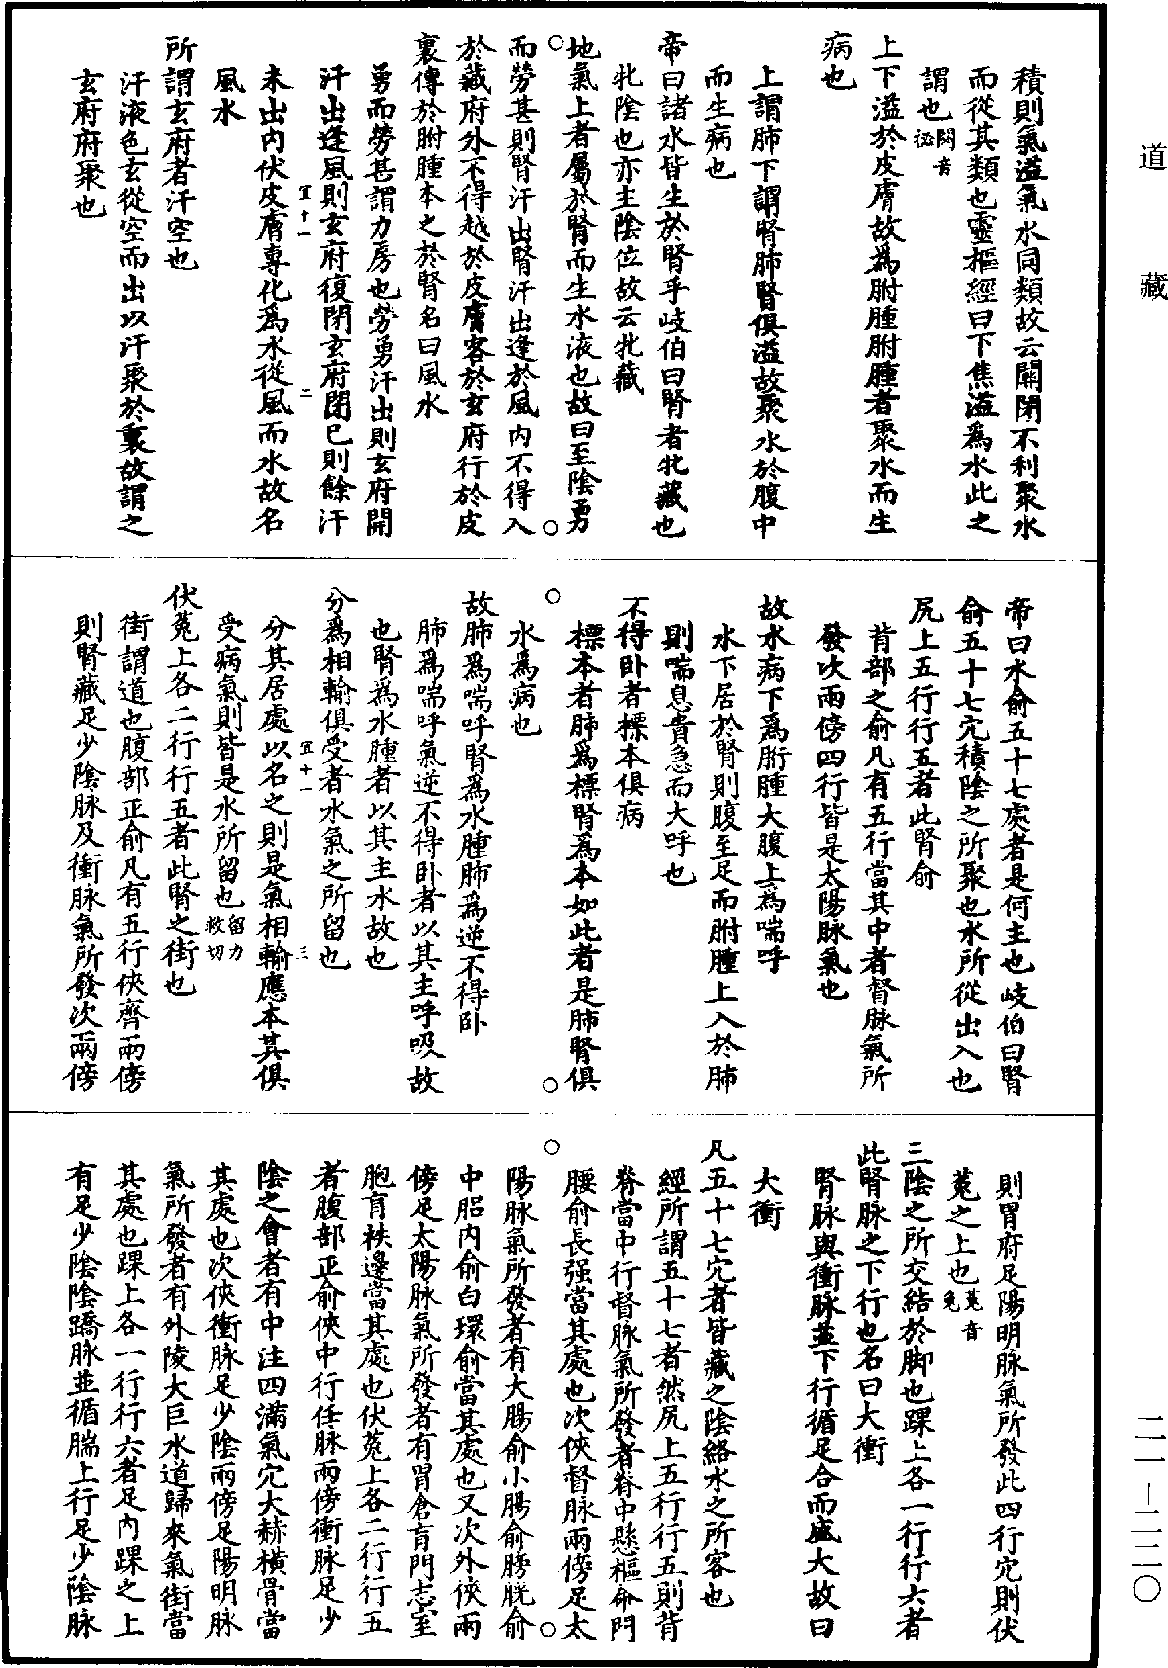 道藏
積則氣溢氣水同類故云關閉不利聚水
而從其類也靈樞經曰下焦溢爲水此之
謂也閟音祕
上下溢於皮膚故爲胕腫胕腫者聚水而生
病也
上謂肺下謂腎肺腎俱溢故聚水於腹中
而生病也
帝曰諸水皆生於腎乎岐伯曰腎者牝藏也
牝陰也亦主陰位故云牝藏
地氣上者屬於腎而生水液也故曰至陰勇
而勞甚則腎汗出腎汗出逢於風內不得入
於藏府外不得越於皮膚客於玄府行於皮
裏傳於胕腫本之於腎名曰風水
勇而勞甚謂力房也勞勇汗出則玄府開
汗出逢風則玄府復閉玄府閉已則餘汗
宜十一 二
未出內伏皮膚專化爲水從風而水故名
風水
所謂玄府者汗空也
汗液色玄從空而出以汗聚於裏故謂之
玄府府聚也
帝曰水俞五十七處者是何主也岐伯曰腎
俞五十七穴積陰之所聚也水所從出入也
尻上五行行五者此腎俞
背部之俞凡有五行當其中者督脉氣所
發次兩傍四行皆是太陽脉氣也
故水病下爲胻腫大腹上爲喘呼
水下居於腎則腹至足而胕腫上入於肺
則喘息賁急而大呼也
不得卧者標本俱病
標本者肺爲標腎爲本如此者是肺腎俱
水爲病也
故肺爲喘呼腎爲水腫肺爲逆不得卧
肺爲喘呼氣逆不得卧者以其主呼吸故
也腎爲水腫者以其主水故也
分爲相輸俱受者水氣之所留也
宜十一 三
分其居處以名之則是氣相輸應本其俱
受病氣則皆是水所留也留力救切
伏菟上各二行行五者此腎之街也
街謂道也腹部正俞凡有五行俠齊兩傍
則腎藏足少陰脉及衝脉氣所發次兩傍
則胃府足陽明脉氣所發此四行穴則伏
菟之上也菟音兔
三陰之所交結於脚也踝上各一行行六者
此腎脉之下行也名曰大衝
腎脉與衝脉並下行循足合而盛大故曰
大衝
凡五十七穴者皆藏之陰絡水之所客也
經所謂五十七者然尻上五行行五則背
脊當中行督脉氣所發者脊中懸樞命門
腰俞長强當其處也次俠督脉兩傍足太
陽脉氣所發者有大腸俞小腸俞膀胱俞
中䏚內俞白環俞當其處也又次外俠兩
傍足太陽脉氣所發者有胃倉肓門志室
胞肓秩邊當其處也伏菟上各二行行五
者腹部正俞俠中行任脉兩傍衝脉足少
陰之會者有中注四滿氣穴大赫橫骨當
其處也次俠衝脉足少陰兩傍足陽明脉
氣所發者有外陵大巨水道歸來氣街當
其處也踝上各一行行六者足內踝之上
有足少陰陰蹻脉並循腨上行足少陰脉
二一－二二〇